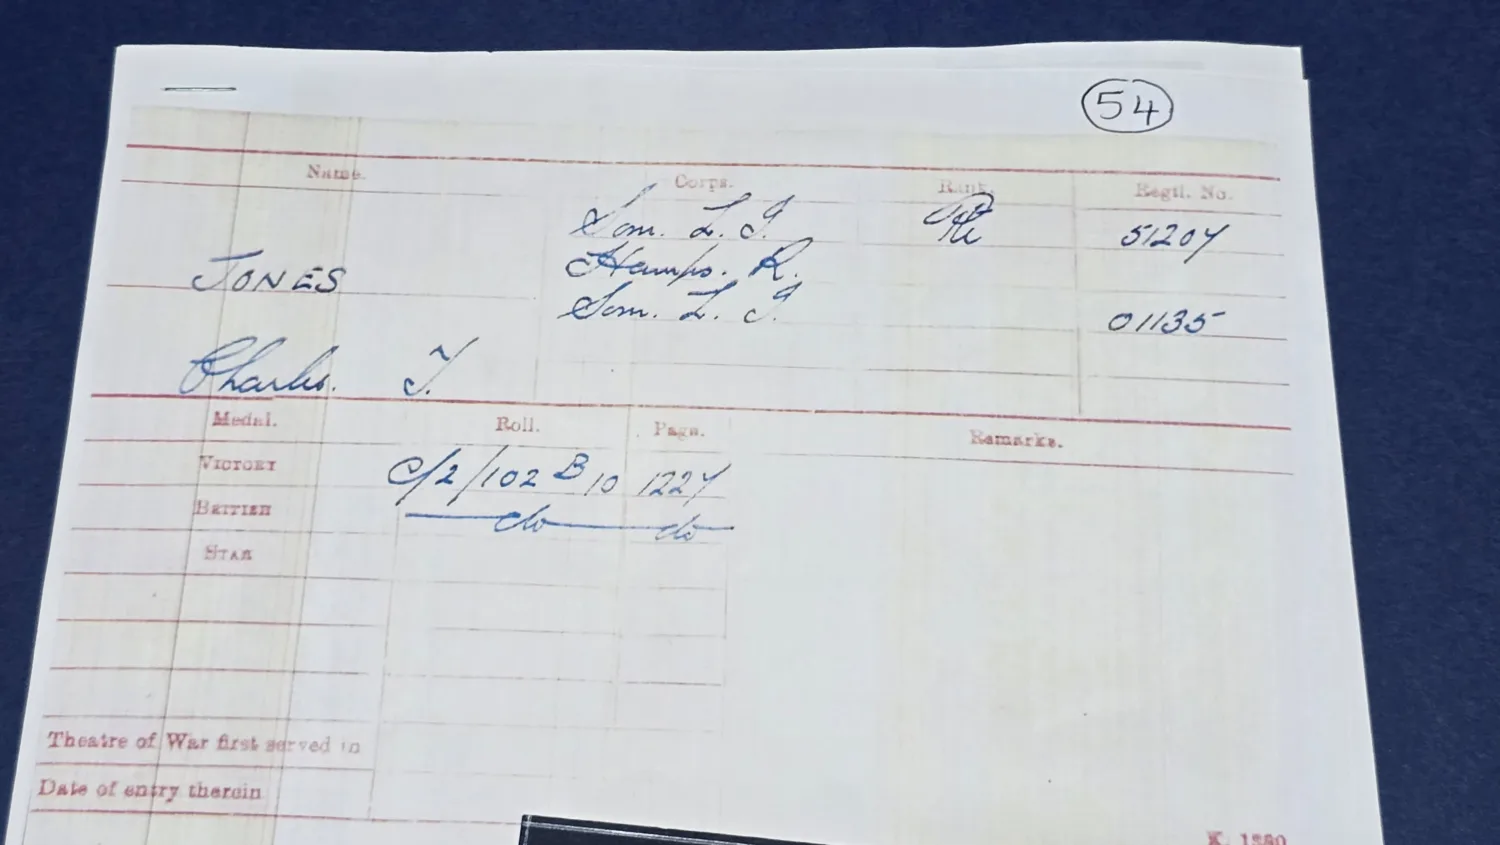 54
Name. Corps. Rank. Regtl. No.
Som. L. I. Pte 51207
Hamps. R.
JONES
Som. L. I. 01135
Charles. T.
Medal. Roll. Page. Remarks.
VICTORY C/2/102 B 10 1227
BRITISH do do
STAR
Theatre of War first served in
Date of entry therein
K. 1380